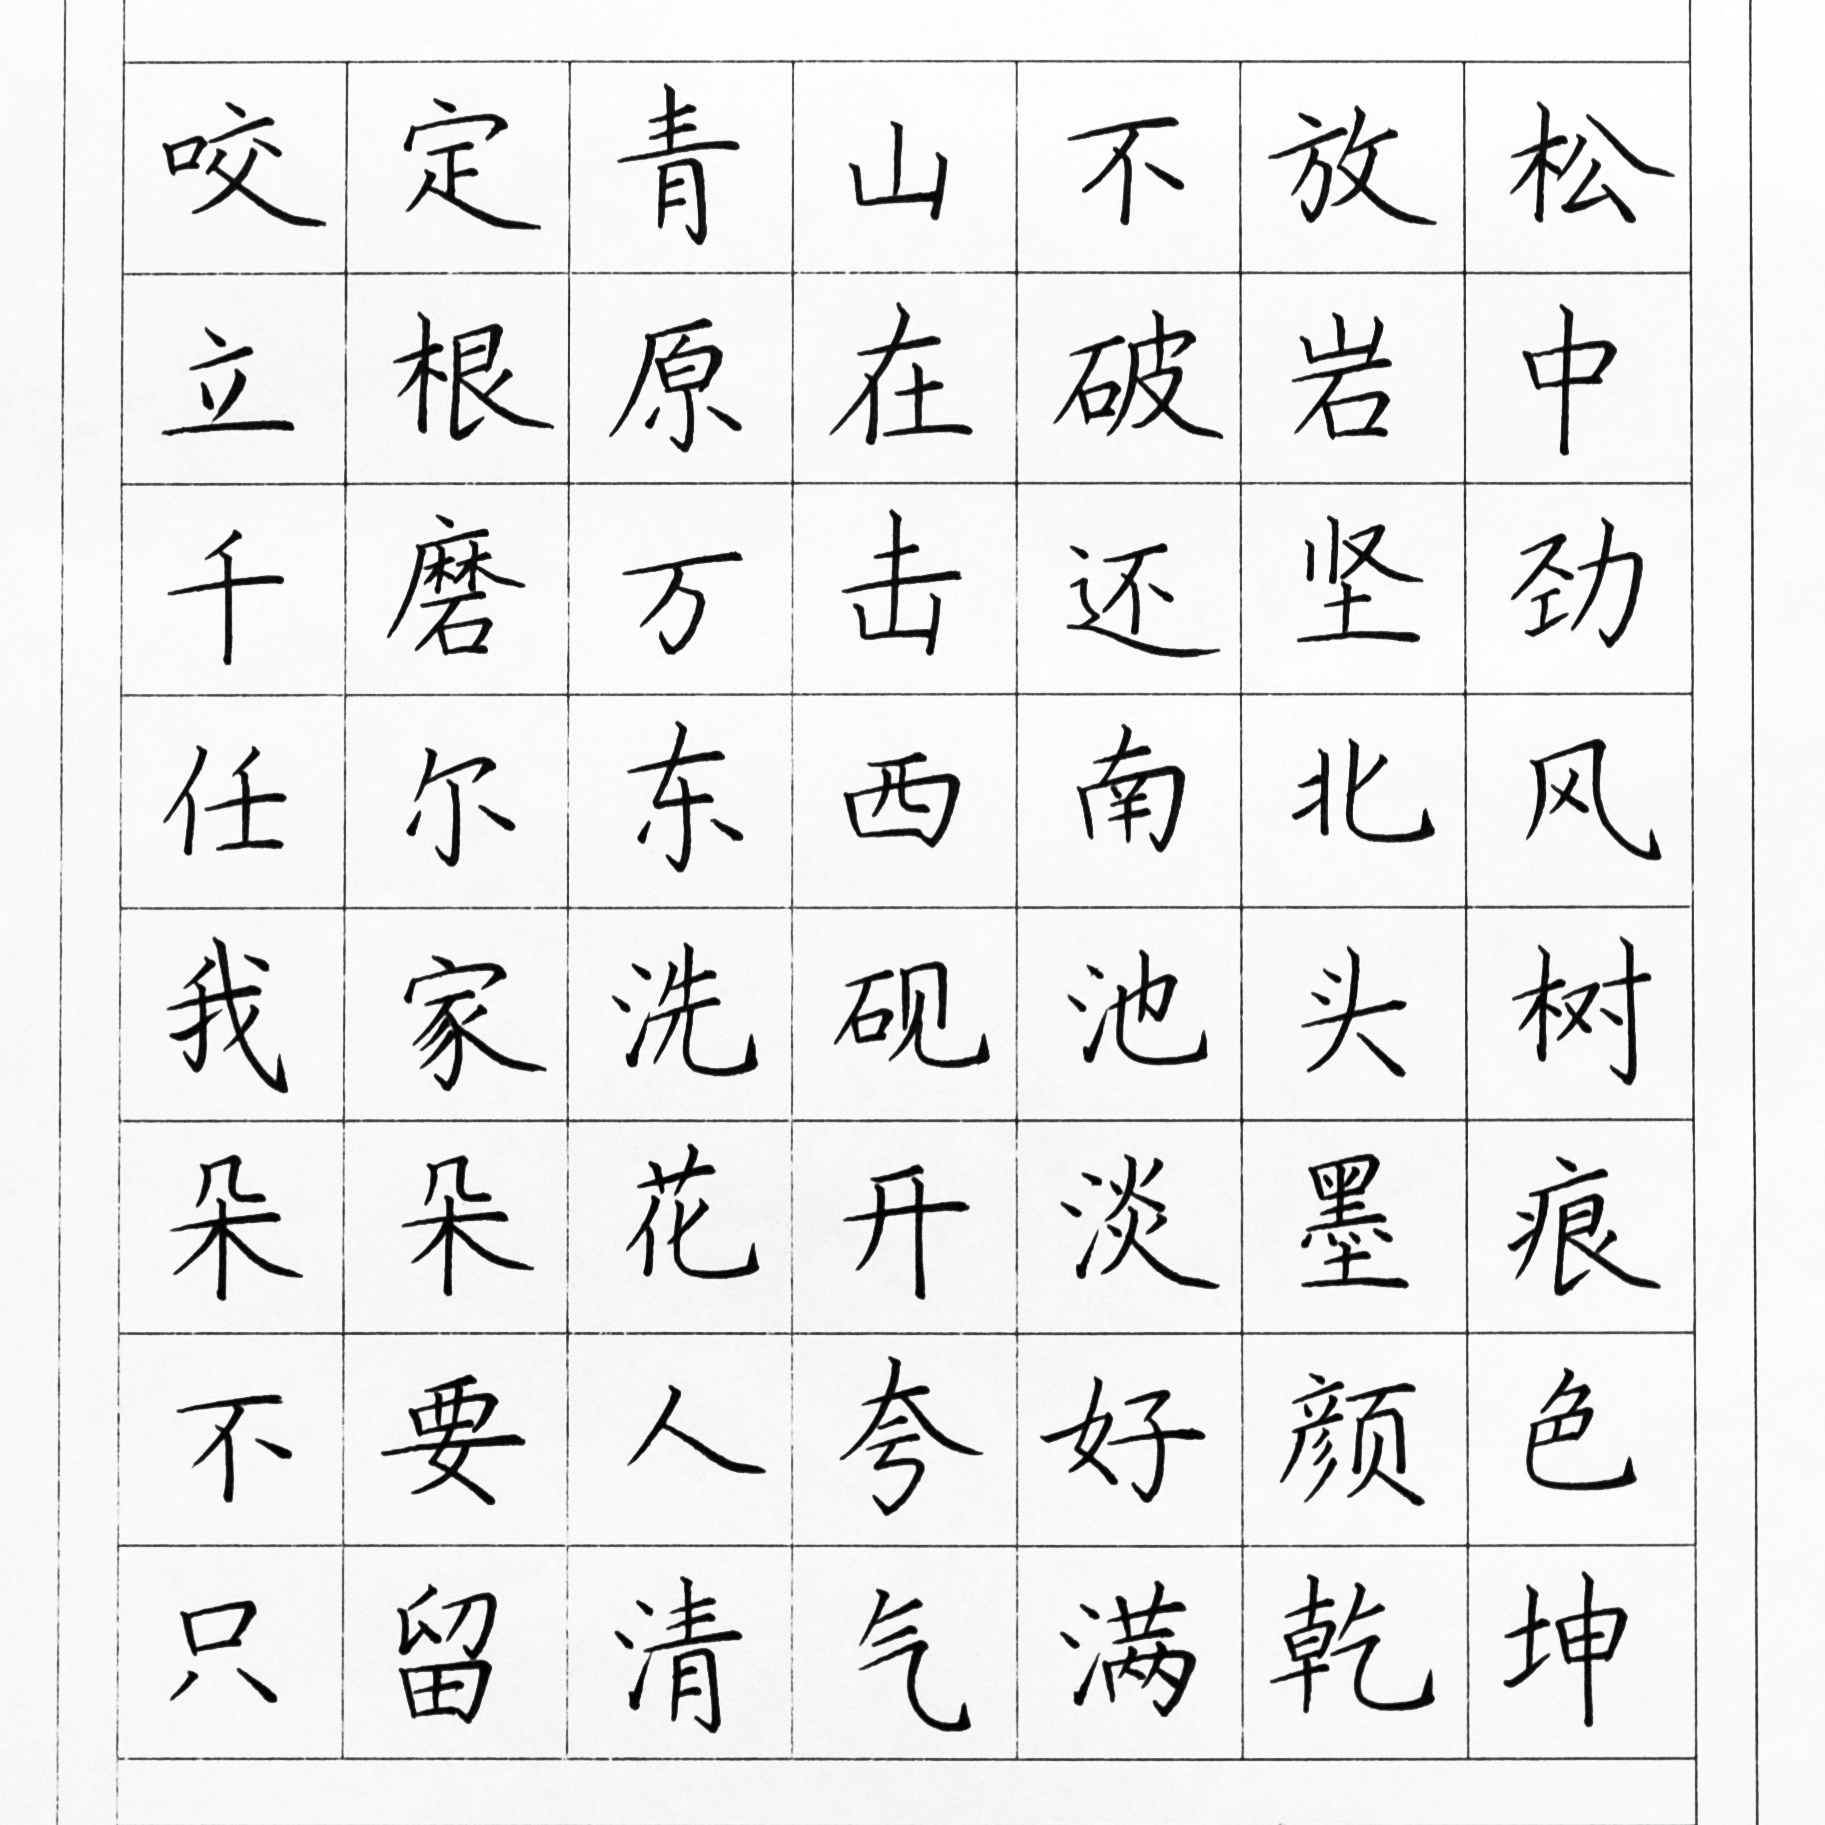 咬定青山不放松
立根原在破岩中
千磨万击还坚劲
任尔东西南北风
我家洗砚池头树
朵朵花开淡墨痕
不要人夸好颜色
只留清气满乾坤